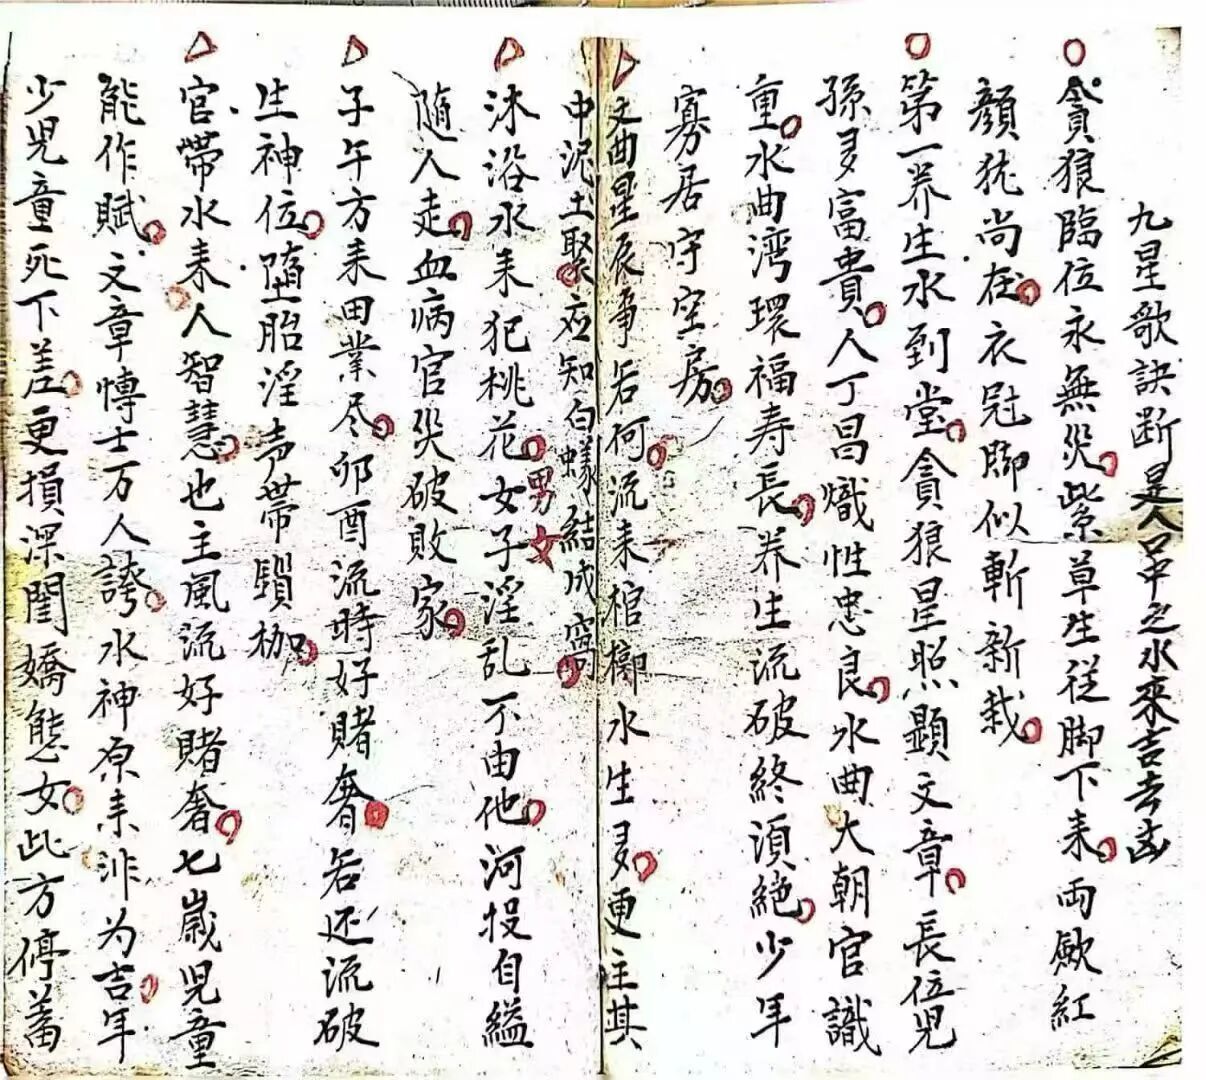 九星歌訣断是人口中之水來吉去凶
貪狼臨位永無災紫草生従脚下来両歐紅
顔犹尚在衣冠脚似斬新栽
第一养生水到堂貪狼星照顯文章長位児
孫多富貴人丁昌熾性忠良水曲大朝官識
重水曲湾環福寿長养生流破終須絶少年
寡居守空房
文曲星辰事若何流来棺槨水生多更主其
中泥土聚应知白蟻結成窩
沐浴水来犯桃花女子淫乱不由他河投自縊
男女
隨人走血病官災破敗家
子午方来田業尽卯酉流時好賭奢若还流破
生神位墮胎淫声帯鎖枷
官帶水来人智慧也主風流好賭奢七歲児童
能作賦文章愽士万人誇水神原来非为吉年
少児童死下差更損深閨嬌態女此方停蓄